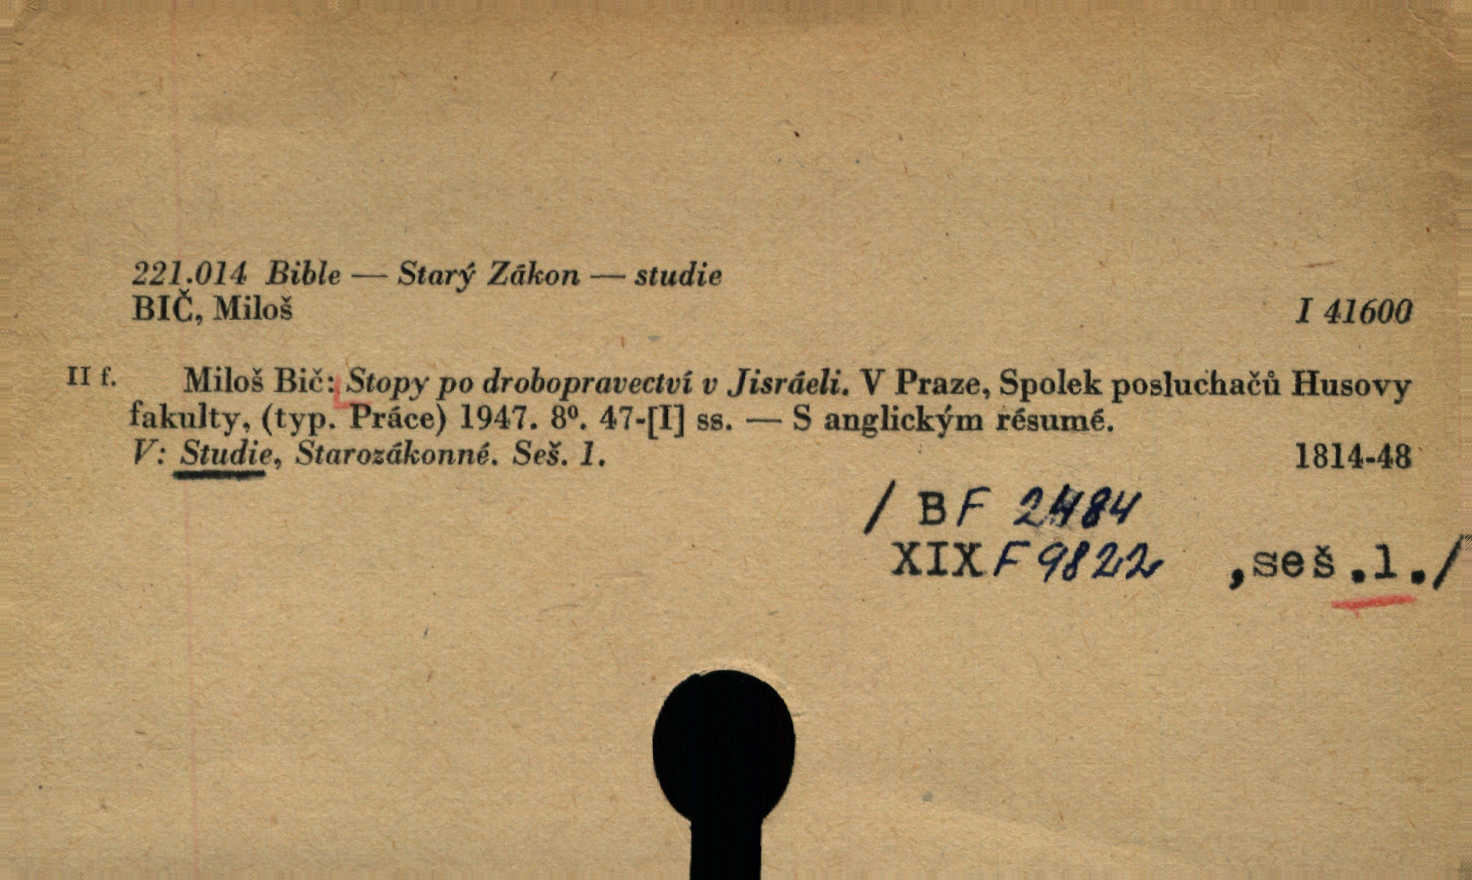 221.014 Bible — Starý Zákon — studie
BIČ, Miloš I 41600
II f. Miloš Bič: Stopy po drobopravectví v Jisráeli. V Praze, Spolek posluchačů Husovy
fakulty, (typ. Práce) 1947. 8⁰. 47-[I] ss. — S anglickým résumé.
V: Studie, Starozákonné. Seš. 1. 1814-48
/ BF 2484
XIX F 9822 ,seš.1./